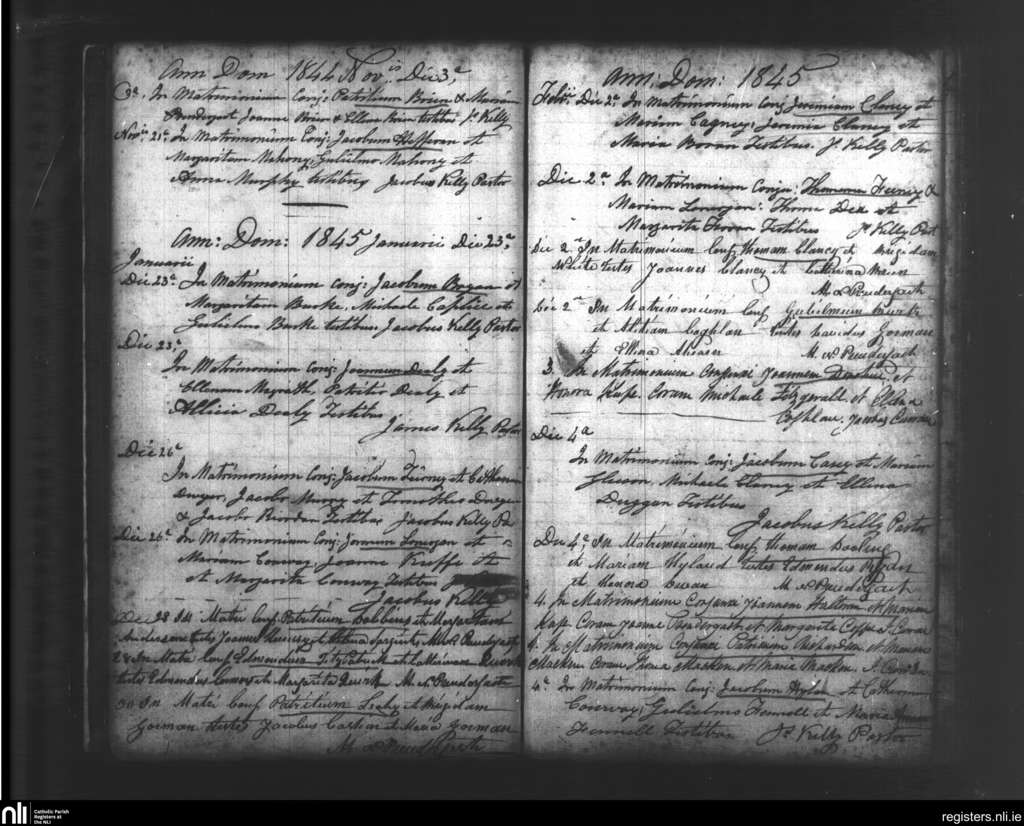 Ann Dom 1844 Nov.is Die 3.a
3.a In Matrimonium Conj: Patritium Brien & Mariam
Pendergast Joanne Brien & Ellena Brien testibus Js Kelly
Nov.is 21.a In Matrimonium Conj: Jacobum Heffernan et
Margaritam Mahony; Gulielmo Mahony et
Anna Murphy testibus Jacobus Kelly Pastor
Ann: Dom: 1845 Januarii Die 23.a
Januarii
Die 23.a In Matrimonium conj: Jacobum Bryan et
Margaritam Burke, Michaele Caplice et
Gulielmo Burke testibus Jacobus Kelly Pastor
Die 23.a
In Matrimonium Conj: Joannem Dealy et
Ellenam Magrath, Patritio Dealy et
Allicia Dealy Testibus
James Kelly Pastor
Die 26.a
In Matrimonium Conj: Jacobum Tierney et Catherinam
Dwyer, Jacobo Murry et Timotheo Dwyer
& Jacobo Riordan Testibus Jacobus Kelly Pa
Die 26.a In Matrimonium Conj: Joannem Lonergan et
Mariam Conway Joanne Keeffe et
et Margarita Conway Testibus
Jacobus Kelly
Die 28 In Matri Conj Patritium Dobbins et Margaritam
Anderson testes Joannes et M. Pendergast
28 In Matri Conj Edmundum FitzPatrick et Mariam Quirk
testes Edmundus et Margarita Quirk M. Pendergast
30 In Matri Conj Patritium Leahy et Brigidam
Gorman testes Jacobus et Maria Gorman
M. Pendergast
Ann: Dom: 1845
Feb.rii Die 2.a In Matrimonium Conj Jeremiam Clancy et
Mariam Cagney; Jeremia Clancy et
Maria Boran Testibus. Js Kelly Pastor
Die 2.a In Matrimonium Conju: Thomam Feeney &
Mariam Lonergan: Thoma Dea et
Margarita Testibus Js Kelly Past
Die 2.a In Matrimonium Conj Thomam Clancy et Brigidam
White testes Joannes Clancy et Catherina
M. Pendergast
Die 2.a In Matrimonium Conj Gulielmum Burke
et Coghlan testes Davidus Gorman
et Ellena Ahearn M. Pendergast
3. In Matrimonium Conjunxi Joannem et
Honora Coram Michaele Fitzgerald et Ellena
Coghlan. Jacobus
Die 4.a
In Matrimonium Conj: Jacobum Casey et Mariam
Gleeson, Michaele Clancy et Ellena
Duggan Testibus
Jacobus Kelly Pastor
Die 4.a In Matrimonium Conj Thomam Dooling
et Mariam Hyland testes Edmundus
et Honora M. Pendergast
4. In Matrimonium Conjunxi Joannem et Mariam
Coram Joanne Pendergast et Margarita
4. In Matrimonium Conjunxi Patritium et Mariam
Macken Coram Thoma Macken et Maria Macken.
4.a In Matrimonium Conj: Jacobum Hylan et Catherinam
Conway; Gulielmo Fennell et Maria
Fennell Testibus Js Kelly Pastor
nli Catholic Parish
Registers at
the NLI
registers.nli.ie